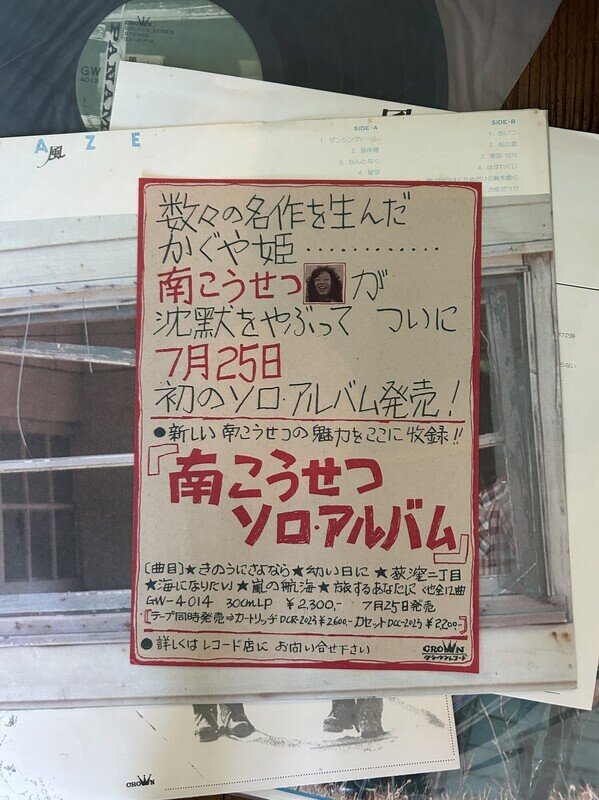 CROWN
GOLDEN SERIES
STEREO
33 1/3 R.P.M.
GW
4013
PANAM
風
AZE
風
SIDE·A
1. ダンシングドール
2. 海岸通
3. なんとなく
4. 星空
SIDE·B
1. あいつ
2. 桜の道
3. 東京 1975
4. はずれくじ
お前だけが
数々の名作を生んだ
かぐや姫…………
南こうせつが
沈黙をやぶって ついに
7月25日
初のソロ・アルバム発売!
●新しい 南こうせつの魅力をここに収録!!
『南こうせつ
ソロ・アルバム』
〔曲目〕★きのうにさよなら★幼い日に ★荻窪二丁目
★海になりたい★嵐の航海★旅するあなたに く他全12曲
GW-4014 30cmLP ¥2,300.- 7月25日発売
[テープ同時発売⇒カートリッヂDCR-2023¥2600.-カセットDCC-2023 ¥2200.-]
●詳しくは レコード店に お問い合せ下さい
CROWN
クラウンレコード
CROWN